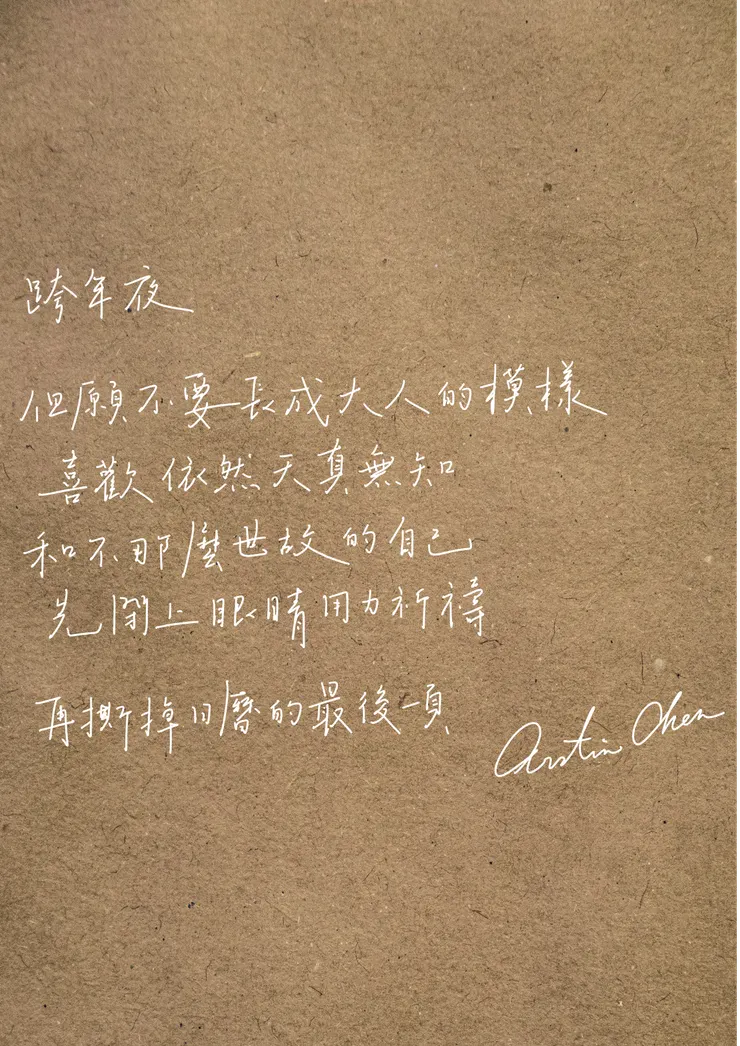 跨年夜
但願不要長成大人的模樣
喜歡依然天真無知
和不那麼世故的自己
先閉上眼睛用力祈禱
再撕掉日曆的最後一頁
Austin Chen